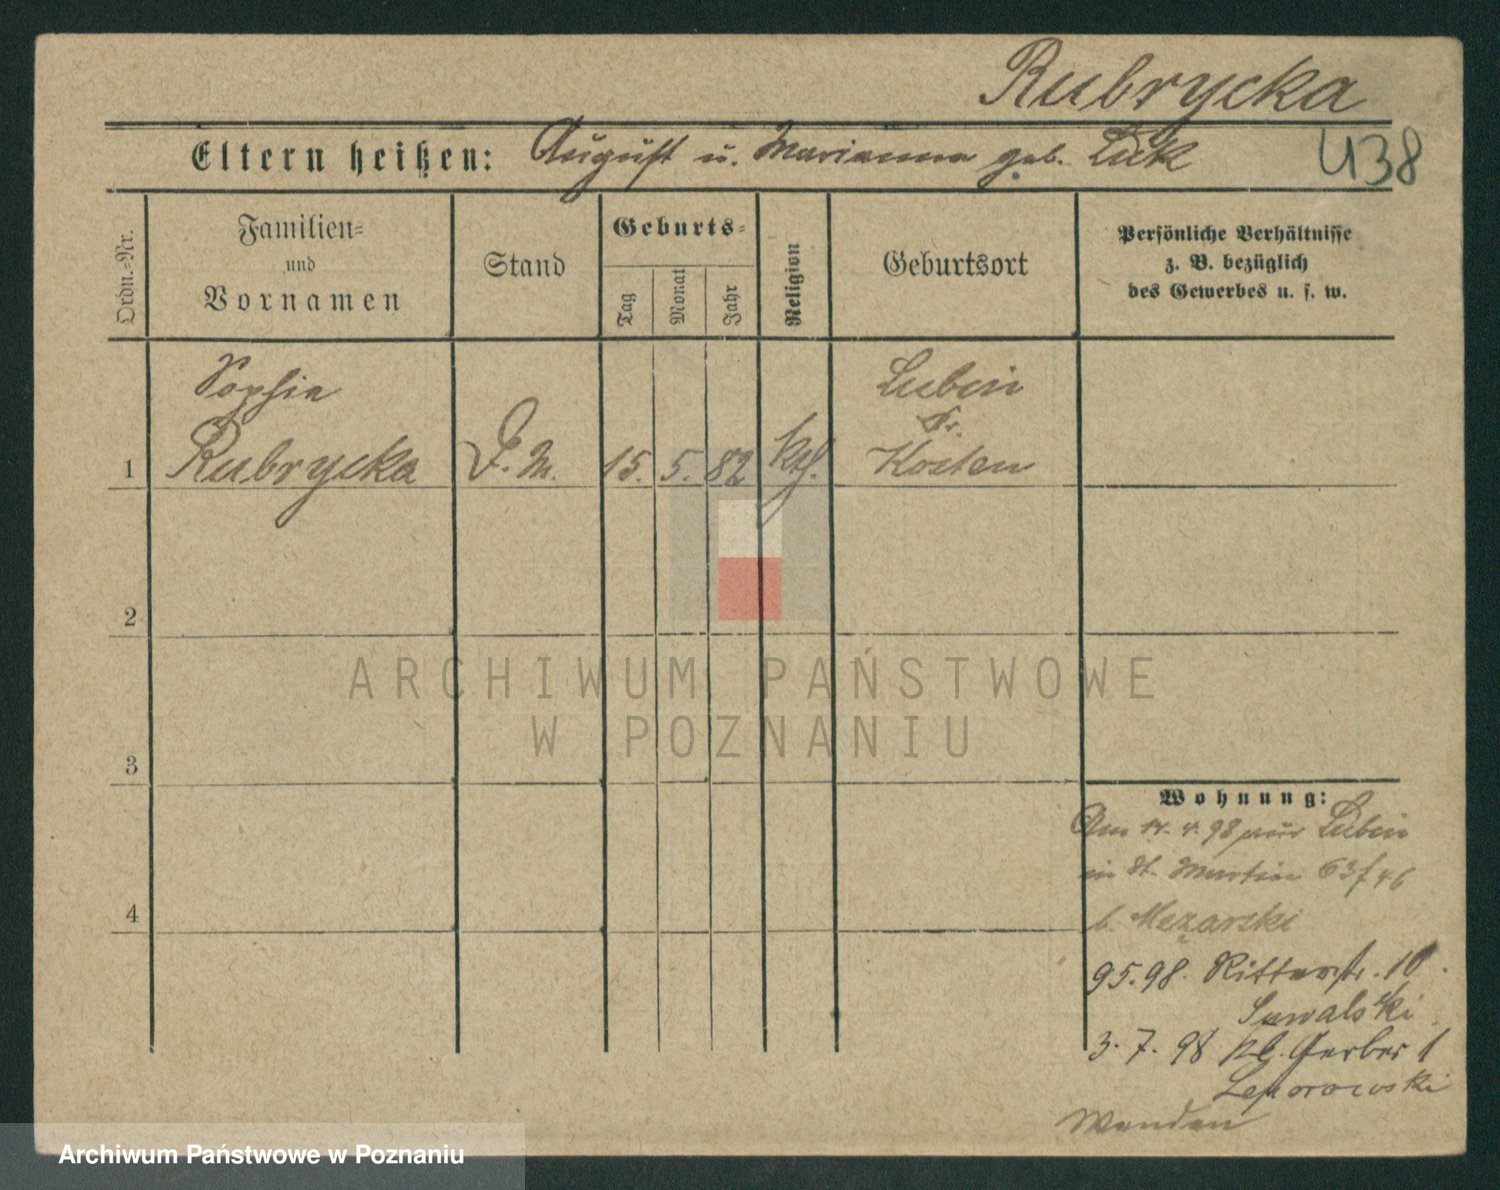 Rubrycka
Eltern heißen: August u. Marianna geb. Luk
438
Ordn.-Nr.
Familien-
und
Vornamen
Stand
Geburts-
Tag
Monat
Jahr
Religion
Geburtsort
Persönliche Verhältnisse
z. B. bezüglich
des Gewerbes u. s. w.
Sophie
Lubin
Kr.
1 Rubrycka D. M. 15. 5. 82 kth. Kosten
2
ARCHIWUM PAŃSTWOWE
W POZNANIU
3
Wohnung:
Am 14. 4. 98 aus Lubin
in St. Martin 63 f 46
b. Mezarski
4
9 5. 98. Ritterstr. 10.
Suwalski
3. 7. 98 kl. Gerber 1
Leporowski
Wenden
Archiwum Państwowe w Poznaniu